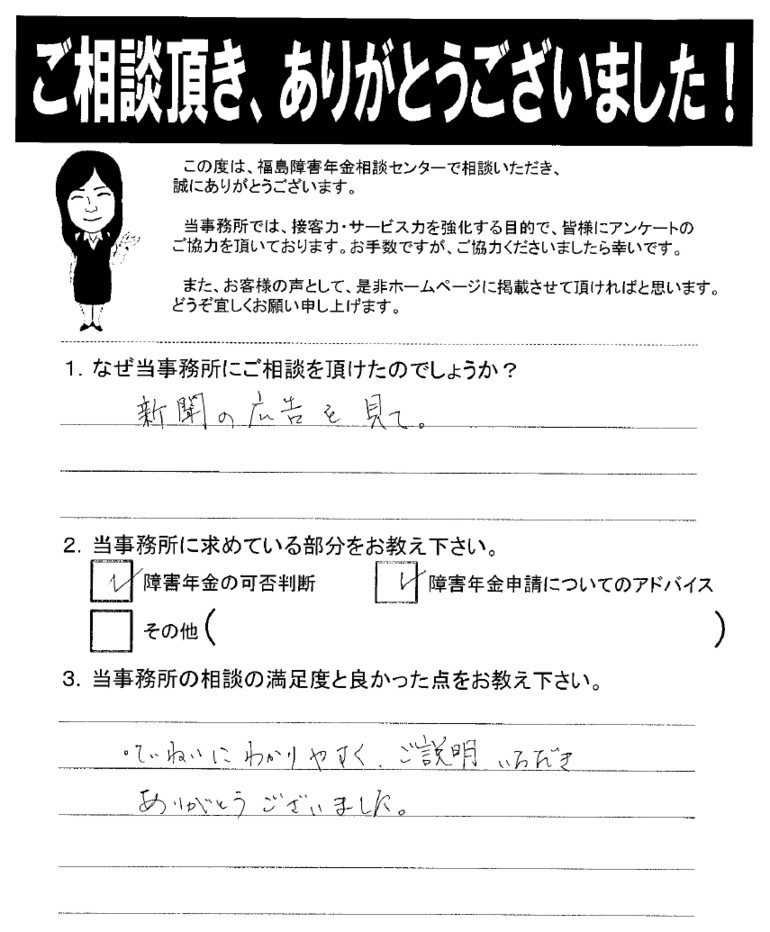 ご相談頂き、ありがとうございました！
この度は、福島障害年金相談センターで相談いただき、
誠にありがとうございます。
当事務所では、接客力・サービス力を強化する目的で、皆様にアンケートの
ご協力を頂いております。お手数ですが、ご協力くださいましたら幸いです。
また、お客様の声として、是非ホームページに掲載させて頂ければと思います。
どうぞ宜しくお願い申し上げます。
1. なぜ当事務所にご相談を頂けたのでしょうか？
新聞の広告を見て。
2. 当事務所に求めている部分をお教え下さい。
障害年金の可否判断 障害年金申請についてのアドバイス
その他（ ）
3. 当事務所の相談の満足度と良かった点をお教え下さい。
・ていねいにわかりやすく、ご説明いただき
ありがとうございました。